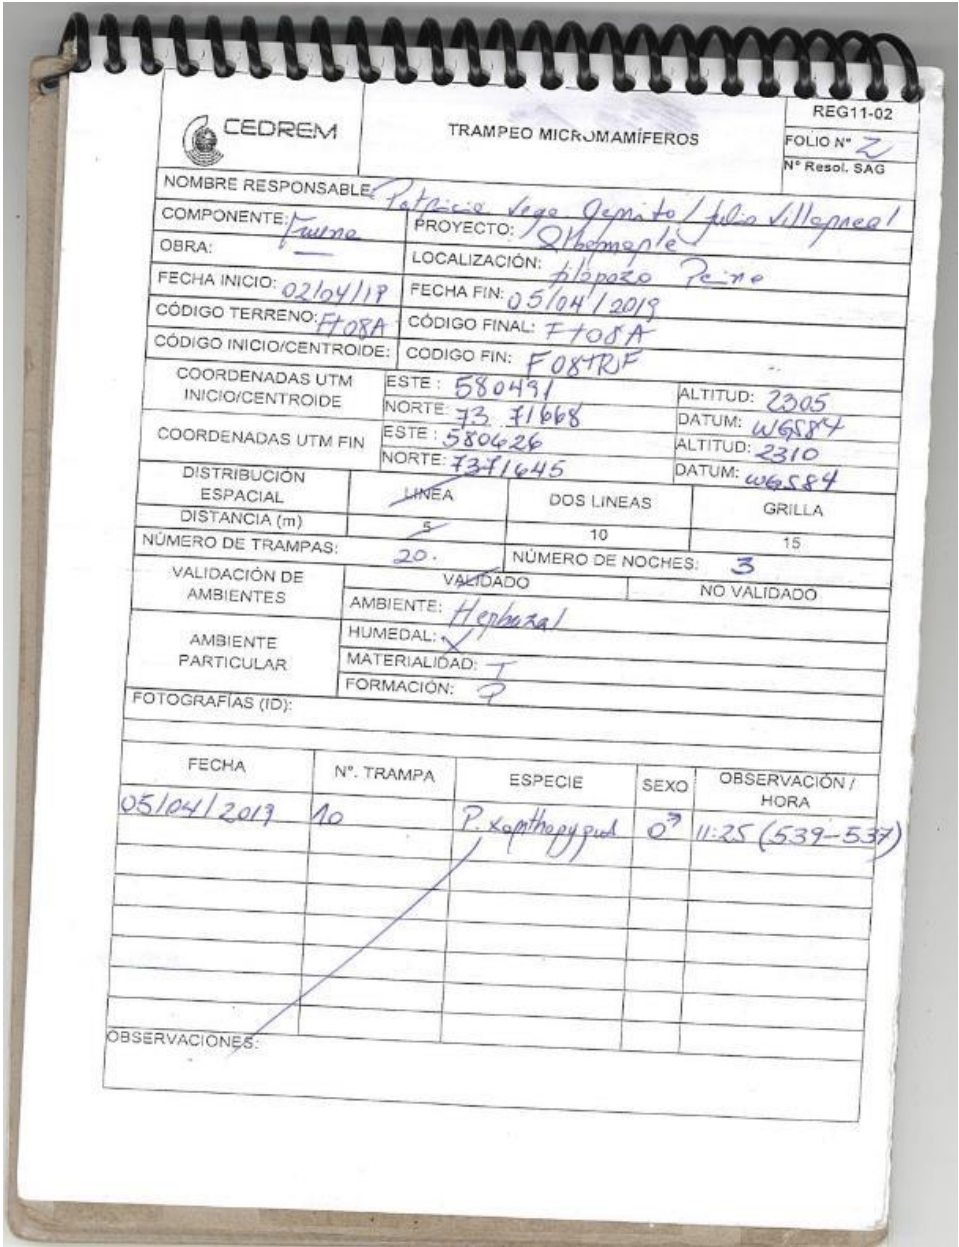 CEDREM
TRAMPEO MICROMAMÍFEROS
REG11-02
FOLIO N° 2
N° Resol. SAG
NOMBRE RESPONSABLE: Patricio Vega / Julio Villarreal
COMPONENTE: Fauna
PROYECTO: Albemarle
OBRA: —
LOCALIZACIÓN: tilopozo Peine
FECHA INICIO: 02/04/19
FECHA FIN: 05/04/2019
CÓDIGO TERRENO: Ft08A
CÓDIGO FINAL: Ft08A
CÓDIGO INICIO/CENTROIDE:
CODIGO FIN: F08TRF
COORDENADAS UTM
INICIO/CENTROIDE
ESTE : 580491
ALTITUD: 2305
NORTE: 73 71668
DATUM: WGS84
COORDENADAS UTM FIN
ESTE : 580626
ALTITUD: 2310
NORTE: 7371645
DATUM: WGS84
DISTRIBUCIÓN
ESPACIAL
LINEA
DOS LINEAS
GRILLA
DISTANCIA (m)
5
10
15
NÚMERO DE TRAMPAS: 20.
NÚMERO DE NOCHES: 3
VALIDACIÓN DE
AMBIENTES
VALIDADO
NO VALIDADO
AMBIENTE: Herbazal
AMBIENTE
PARTICULAR
HUMEDAL: X
MATERIALIDAD: T
FORMACIÓN:
FOTOGRAFÍAS (ID):
FECHA
N°. TRAMPA
ESPECIE
SEXO
OBSERVACIÓN /
HORA
05/04/2019 10 P. xanthopygus ♂ 11:25 (539-537)
OBSERVACIONES: